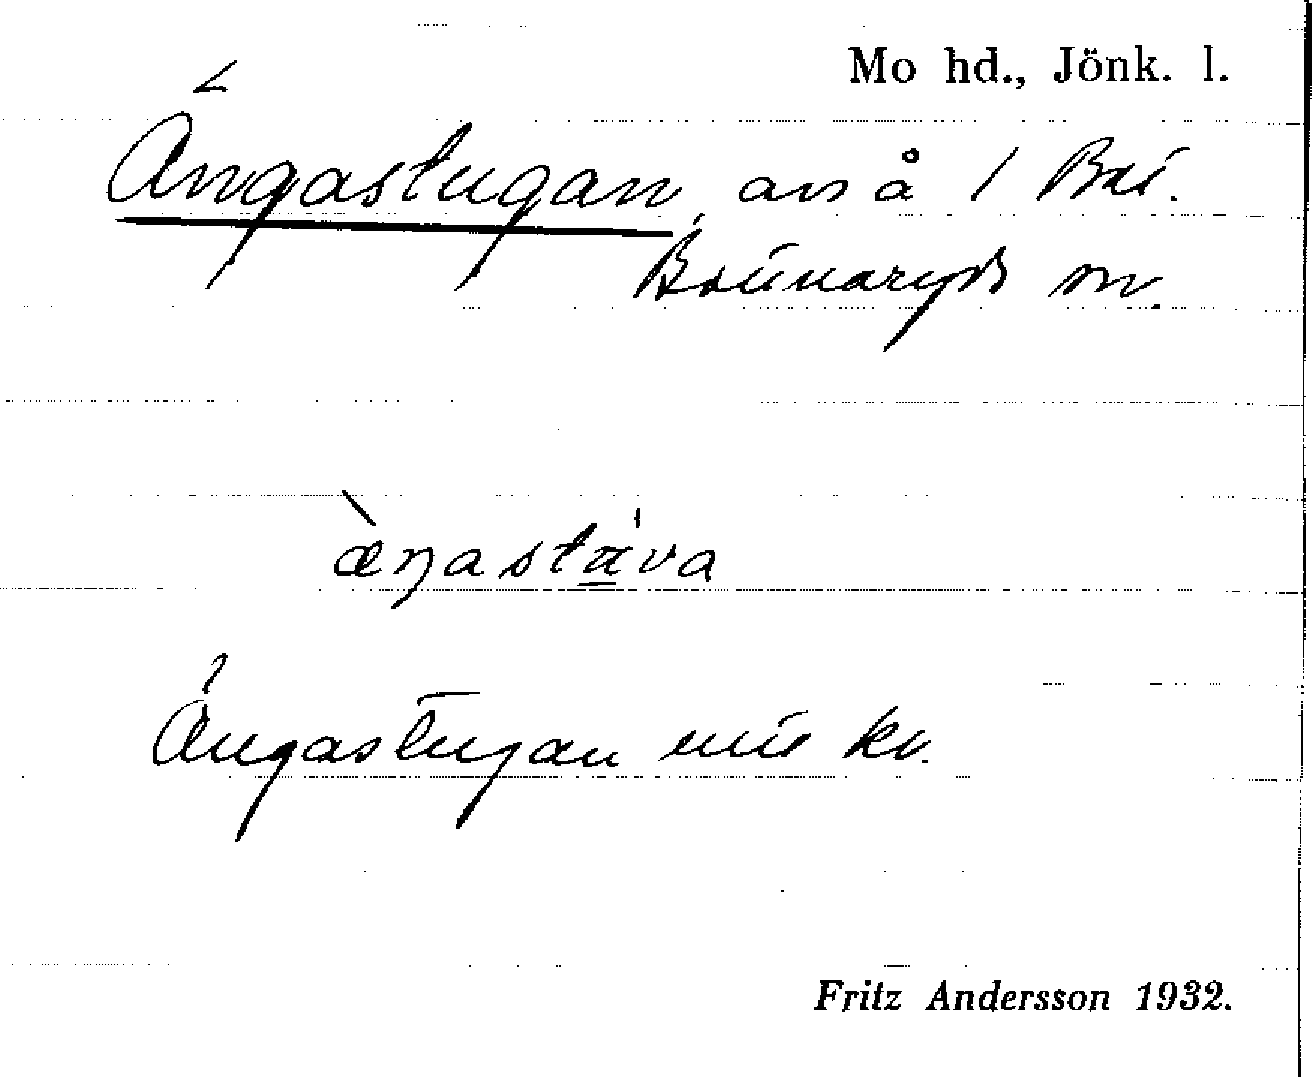 Mo hd., Jönk. l.
Ängastugan, avs å 1 Bra.
Bounaryds sn.
æŋastu̳va
Ängastugan kv.
Fritz Andersson 1932.